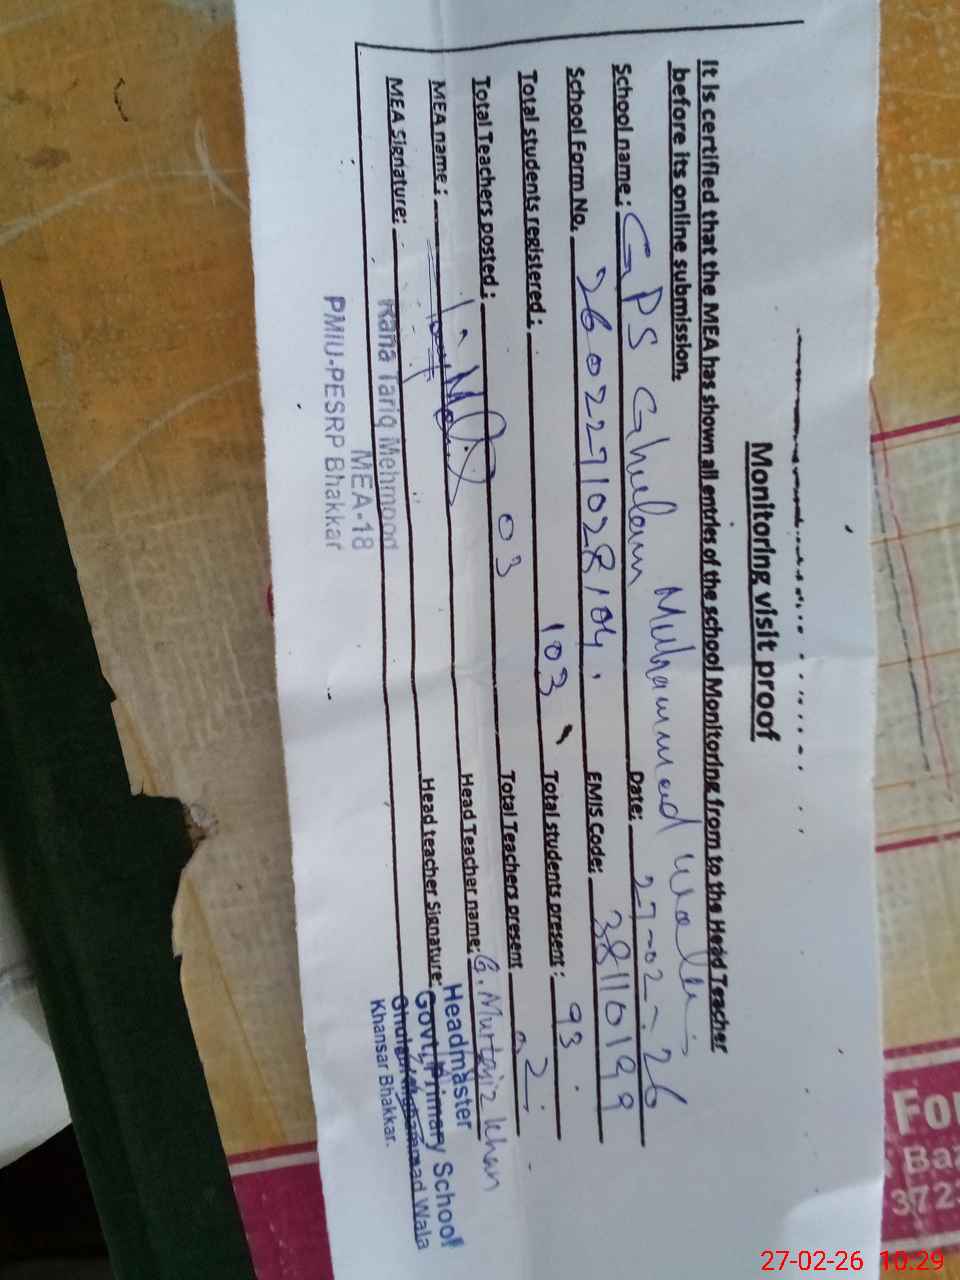 Monitoring visit proof
It is certified that the MEA has shown all entries of the school Monitoring from to the Head Teacher
before its online submission.
School name: GPS Ghulam Muhammad Wala Date: 27-02-26
School Form No. 2602271028104. EMIS Code: 38110199
Total students registered: 103 Total students present: 93
Total Teachers posted: 03 Total Teachers present 02
MEA name: Head Teacher name: G. Murtaiz Khan
MEA Signature: Head teacher Signature:
Rana Tariq Mehmood
MEA-18
PMIU-PESRP Bhakkar
Headmaster
Govt, Primary School
Ghulam Muhammad Wala
Khansar Bhakkar.
For
Baz
3723
27-02-26 10:29